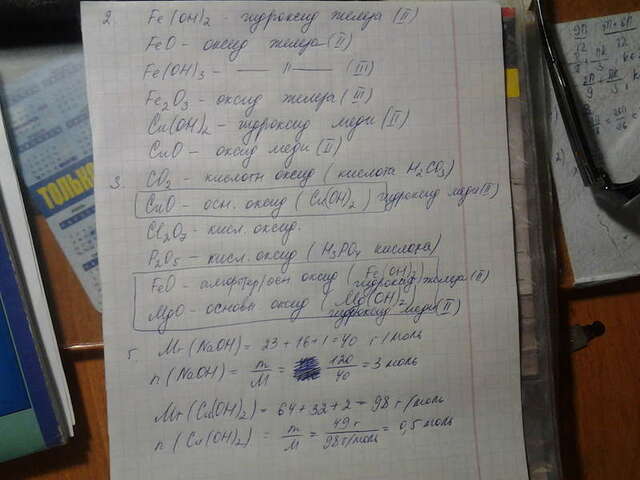 2. Fe(OH)2 - гидроксид железа (II)
FeO - оксид железа (II)
Fe(OH)3 - —— 11 —— (III)
Fe2O3 - оксид железа (III)
Cu(OH)2 - гидроксид меди (II)
CuO - оксид меди (II)
3. CO2 - кислотн оксид (кислота H2CO3)
CuO - осн. оксид (Cu(OH)2) гидроксид меди (II)
Cl2O7 - кисл. оксид.
P2O5 - кисл. оксид (H3PO4 кислота)
FeO - оксид (Fe(OH)2) гидроксид железа (II)
MgO - основн оксид (Mg(OH)2) гидроксид меди (II)
5. Mr(NaOH) = 23 + 16 + 1 = 40 г/моль
n(NaOH) = m/M = 120/40 = 3 моль
Mr(Cu(OH)2) = 64 + 32 + 2 = 98 г/моль
n(Cu(OH)2) = m/M = 49 г/98 г/моль = 0,5 моль
ТОЛЬКО